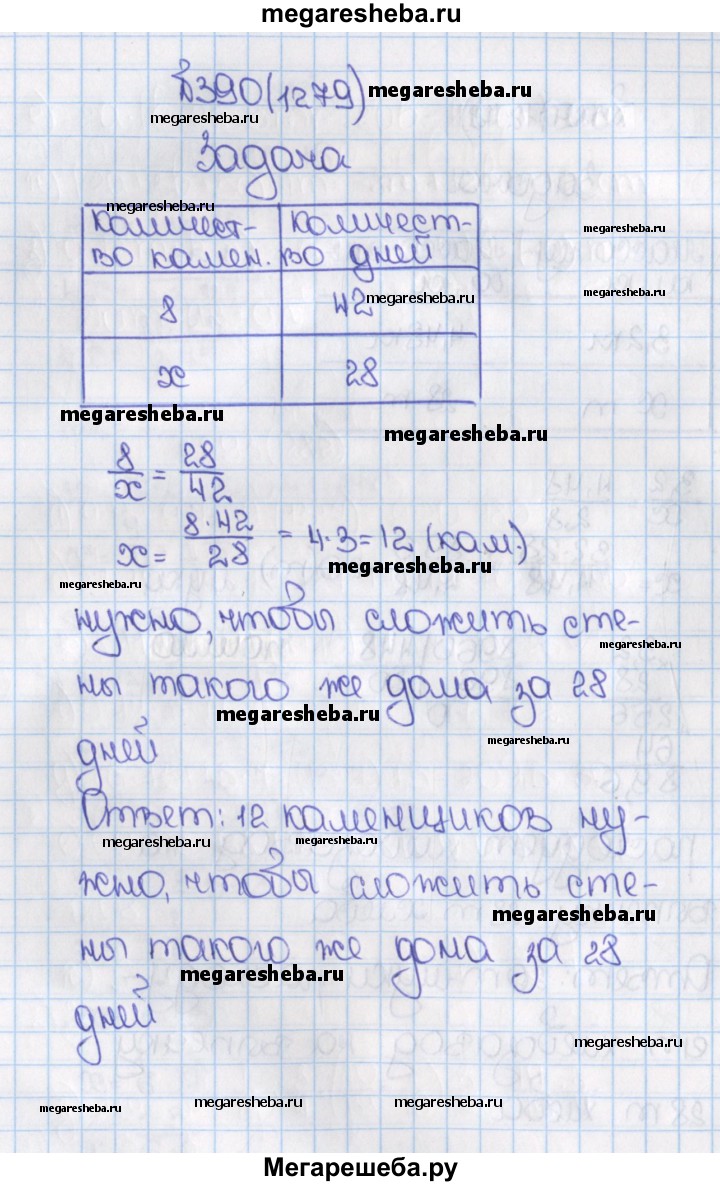 megaresheba.ru
№390(1279) megaresheba.ru
megaresheba.ru
Задача
megaresheba.ru
Количест- Количест-
во камен. во дней
megaresheba.ru
megaresheba.ru
8 42
megaresheba.ru
x 28
megaresheba.ru
megaresheba.ru
8/x = 28/42
x = 8·42/28 = 4·3=12 (кам.)
megaresheba.ru
megaresheba.ru
нужно, чтобы сложить сте-
megaresheba.ru
ны такого же дома за 28
megaresheba.ru
дней
megaresheba.ru
Ответ: 12 каменщиков ну-
megaresheba.ru megaresheba.ru
жно, чтобы сложить сте-
megaresheba.ru
ны такого же дома за 28
megaresheba.ru
дней
megaresheba.ru
megaresheba.ru megaresheba.ru megaresheba.ru
Мегарешеба.ру